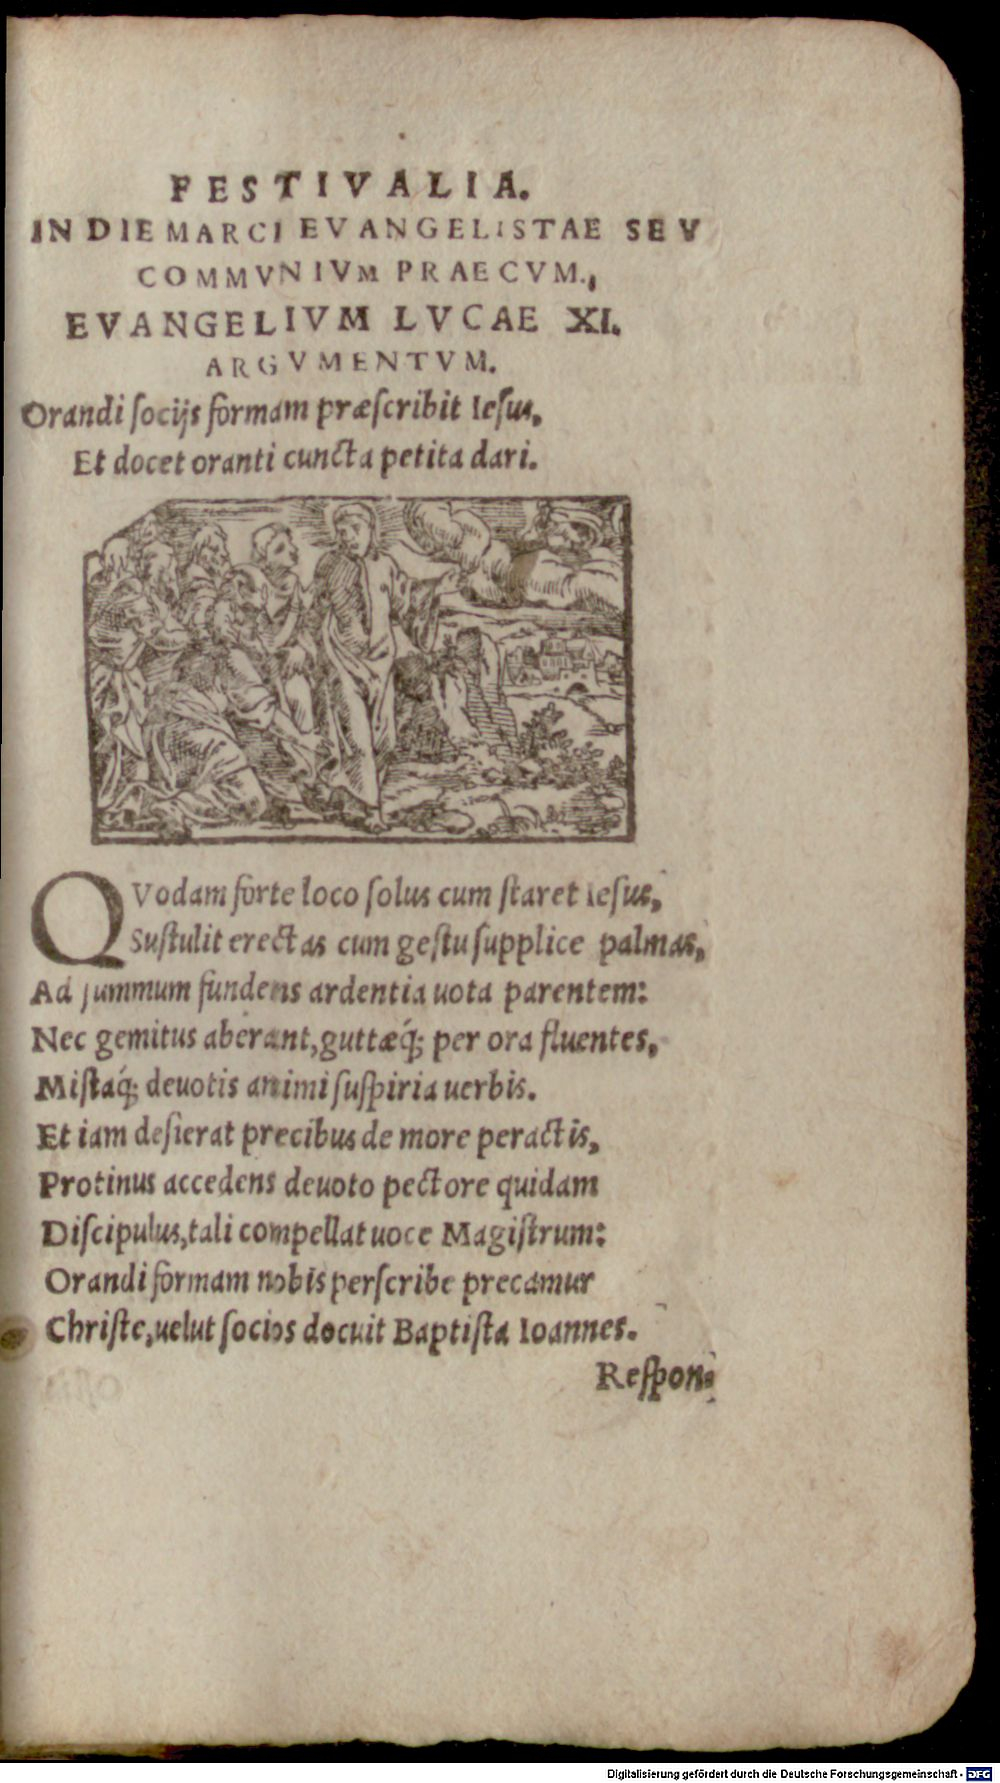 FESTIVALIA.
IN DIE MARCI EVANGELISTAE SEV
COMMVNIVM PRAECVM.,
EVANGELIVM LVCAE XI.
ARGVMENTVM.
Orandi socijs formam præscribit Iesus,
Et docet oranti cuncta petita dari.
QVodam forte loco solus cum staret Iesus,
Sustulit erectas cum gestu supplice palmas,
Ad summum fundens ardentia uota parentem:
Nec gemitus aberant, guttæq́; per ora fluentes,
Mistaq́; deuotis animi suspiria uerbis.
Et iam desierat precibus de more peractis,
Protinus accedens deuoto pectore quidam
Discipulus, tali compellat uoce Magistrum:
Orandi formam nobis perscribe precamur
Christe, uelut socios docuit Baptista Ioannes.
Respon-
Digitalisierung gefördert durch die Deutsche Forschungsgemeinschaft - DFG